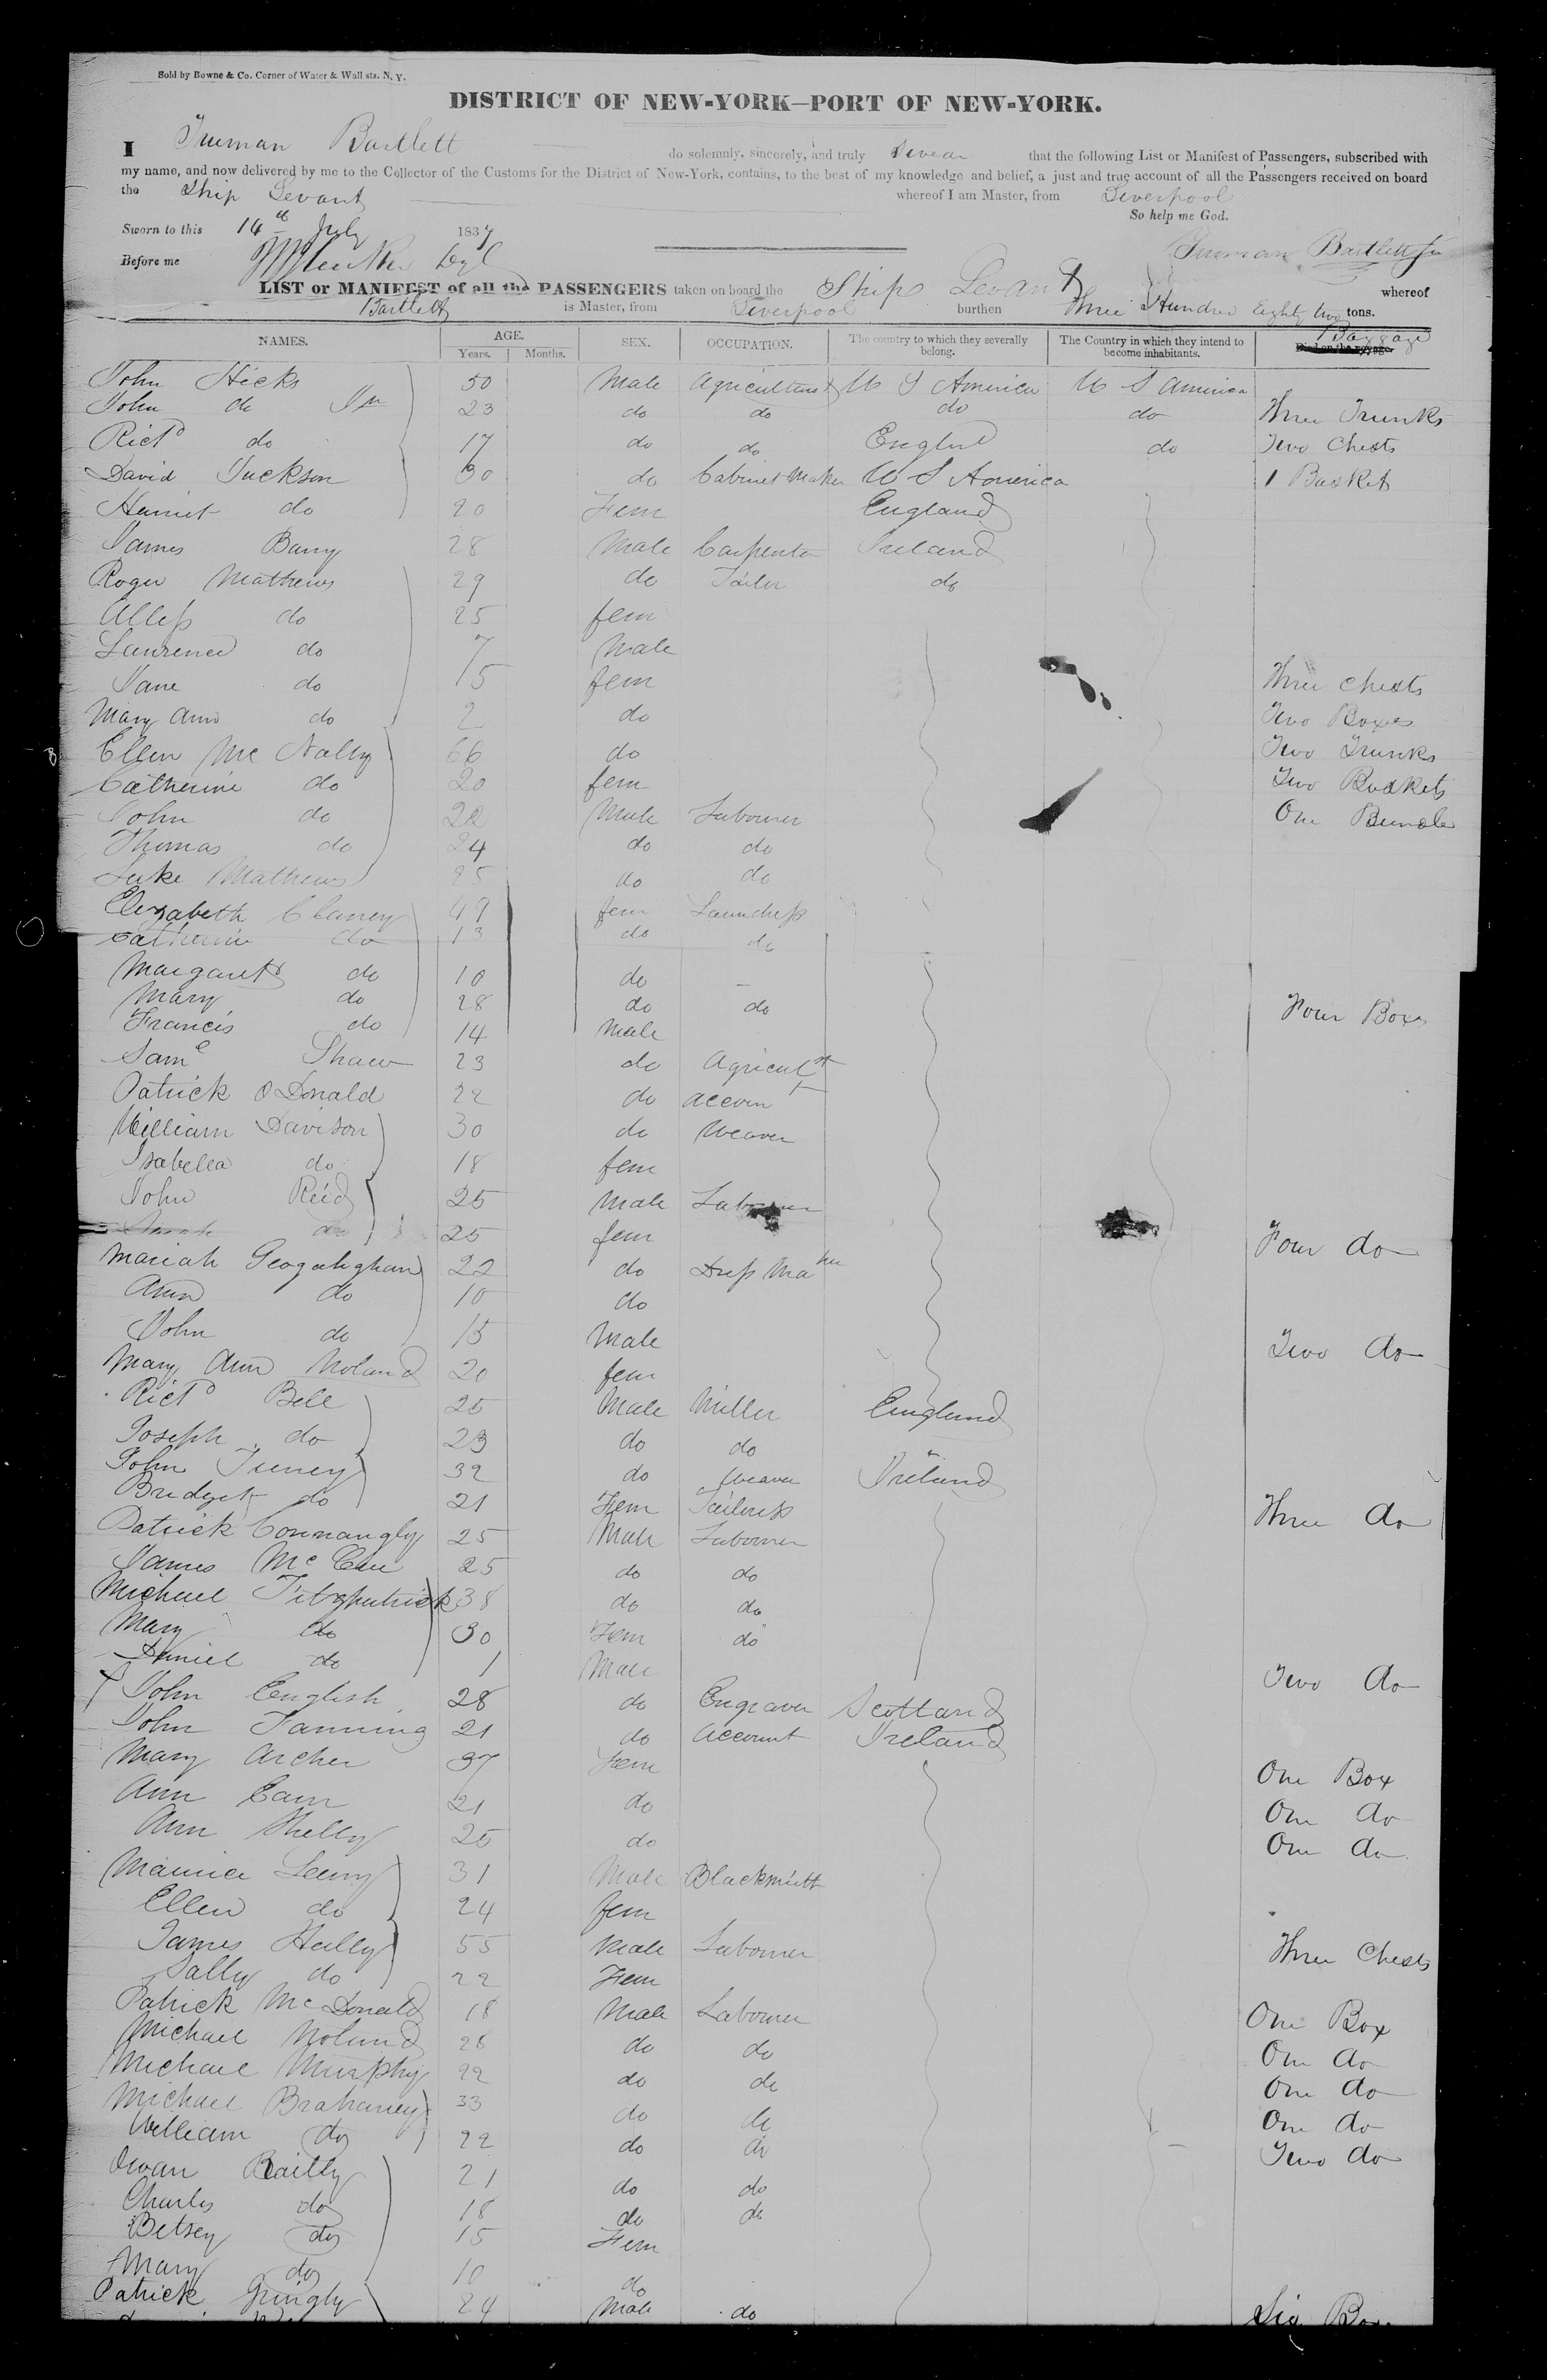 Sold by Bowne & Co. Corner of Water & Wall sts. N. Y.
DISTRICT OF NEW-YORK—PORT OF NEW-YORK.
I Truman Bartlett do solemnly, sincerely, and truly Swear that the following List or Manifest of Passengers, subscribed with
my name, and now delivered by me to the Collector of the Customs for the District of New-York, contains, to the best of my knowledge and belief, a just and true account of all the Passengers received on board
the Ship Levant whereof I am Master, from Liverpool
So help me God.
Sworn to this 14th July 1837
Before me Truman Bartlett Jr
LIST or MANIFEST of all the PASSENGERS taken on board the Ship Levant whereof
Bartlett is Master, from Liverpool burthen Three Hundred Eighty two tons.
NAMES. AGE. Years. Months. SEX. OCCUPATION. The country to which they severally belong. The Country in which they intend to become inhabitants. Died on the voyage. Baggage
John Hicks 50 Male Agriculturist U S America U S America
John do Jr 23 do do do do Three Trunks
Richd do 17 do do England do Two Chests
David Jackson 30 do Cabinet Maker U S America 1 Basket
Harriet do 20 Fem England
James Barry 28 Male Carpenter Ireland
Roger Mathews 29 do Tailor do
do 25 fem
Laurence do 7 Male
Jane do 5 fem Three Chests
Mary Ann do 2 do Two Boxes
Ellen Mc Nally 66 do Two Trunks
Catherine do 20 fem Two Baskets
John do Male Labourer One Bundle
Thomas do 24 do do
Luke Mathews 25 do do
Elizabeth Clancy 49 fem Laundress
Catherine do 13 do do
Margaret do 10 do —
Mary do 28 do do Four Boxes
Francis do 14 Male
Saml Shaw 23 do Agricult
Patrick O Donald 22 do Accountt
William Davison 30 do Weaver
Isabella do 18 fem
John Reid 25 Male Labourer
Sarah do 25 fem Four do
Mariah Geogahghan 22 do Dress Maker
Ann do 10 do
John do 15 Male Two do
Mary Ann Noland 20 fem
Richd Bell 25 Male Miller England
Joseph do 23 do do
John 32 do Weaver Ireland
Bridget do 21 Fem Tailoress Three do
Patrick Connaughy 25 Male Labourer
James Mc Cue 25 do do
Michael Fitzpatrick 38 do do
Mary do 30 Fem do
Daniel do 1 Male Two do
John English 28 do Engraver Scotland
John Fanning 21 do Account Ireland
Mary Archer 37 Fem One Box
Ann Cam 21 do One do
Ann Shelly 25 do One do
Maurice Leary 31 Male Blacksmith
Ellen do 24 fem
James Hally 55 Male Labourer Three Chests
Sally do 22 Fem
Patrick Mc Donald 18 Male Labourer One Box
Michael Noland 28 do do One do
Michael Murphy 22 do do One do
Michael Brahaney 33 do do One do
William do 22 do do Two do
Owan Railly 21 do do
Charles do 18 do do
Betsey do 15 Fem
Mary do 10 do
Patrick 24 Male do Six Boxes